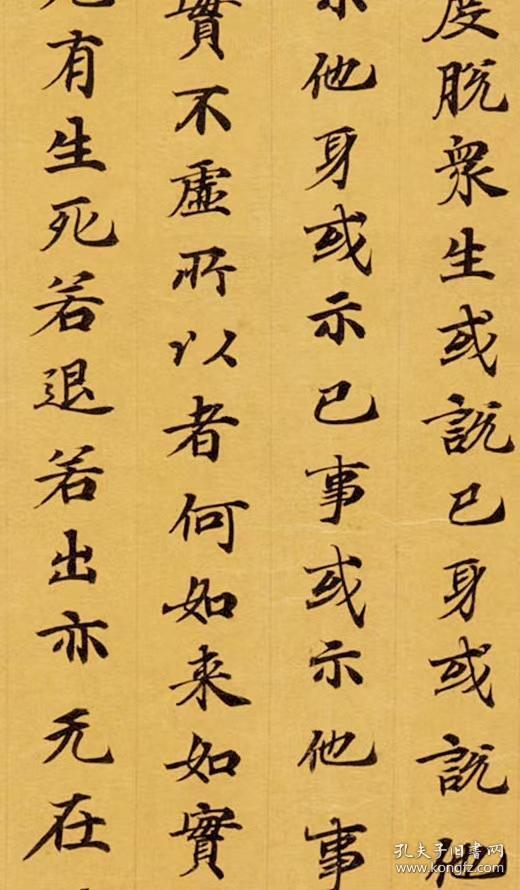 度脫衆生或説已身或説他
示他身或示已事或示他事
實不虛所以者何如来如實
无有生死若退若出亦无在
孔夫子旧书网
www.kongfz.com